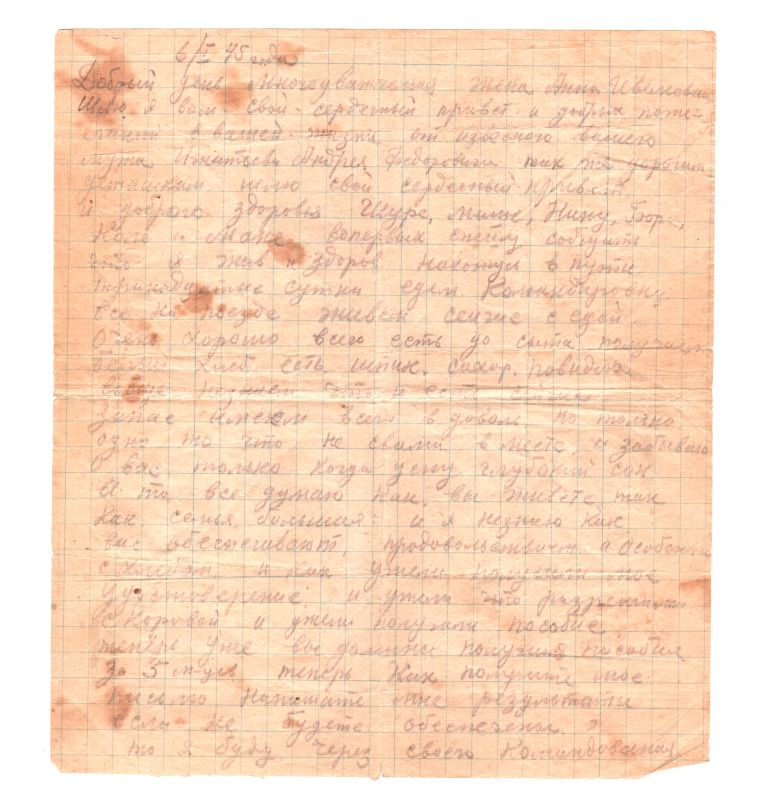 6/I 45 года
Добрый день многоуважаемая жена Анна Ивановна
Шлю я вам свой сердечный привет и добрых поже-
ланий в вашей жизни от известного вашего
мужа Игнатьева Андрея Федоровича так же дорогим
детишкам шлю свой сердечный привет
и доброго здоровья Шуре, Нину,
Коле и Мане вопервых спешу сообщить
что я жив и здоров нахожусь в пути
тринадцатые сутки едем
все на поезде живем сейчас с едой
очень хорошо всего есть до сыта получаем
белый хлеб есть шпик. сахор. повидло
и есть
Запас имеем всего в доволь но только
одно то что не свами вместе и забываю
О вас только когда усну глубокий сон
А то все думаю как вы живете так
как семья большая и я незнаю как
вас обеспечивают продовольствием а особенно
схлебом и как ужели получили мое
удостоверение и ужели что разрешили
с коровой и ужели получали пособие
теперь уже вы должны получить пособия
за 5 м-цев теперь Как получите мое
письмо напишите мне результаты
если не будете обеспечены ?
то я буду через своего командования